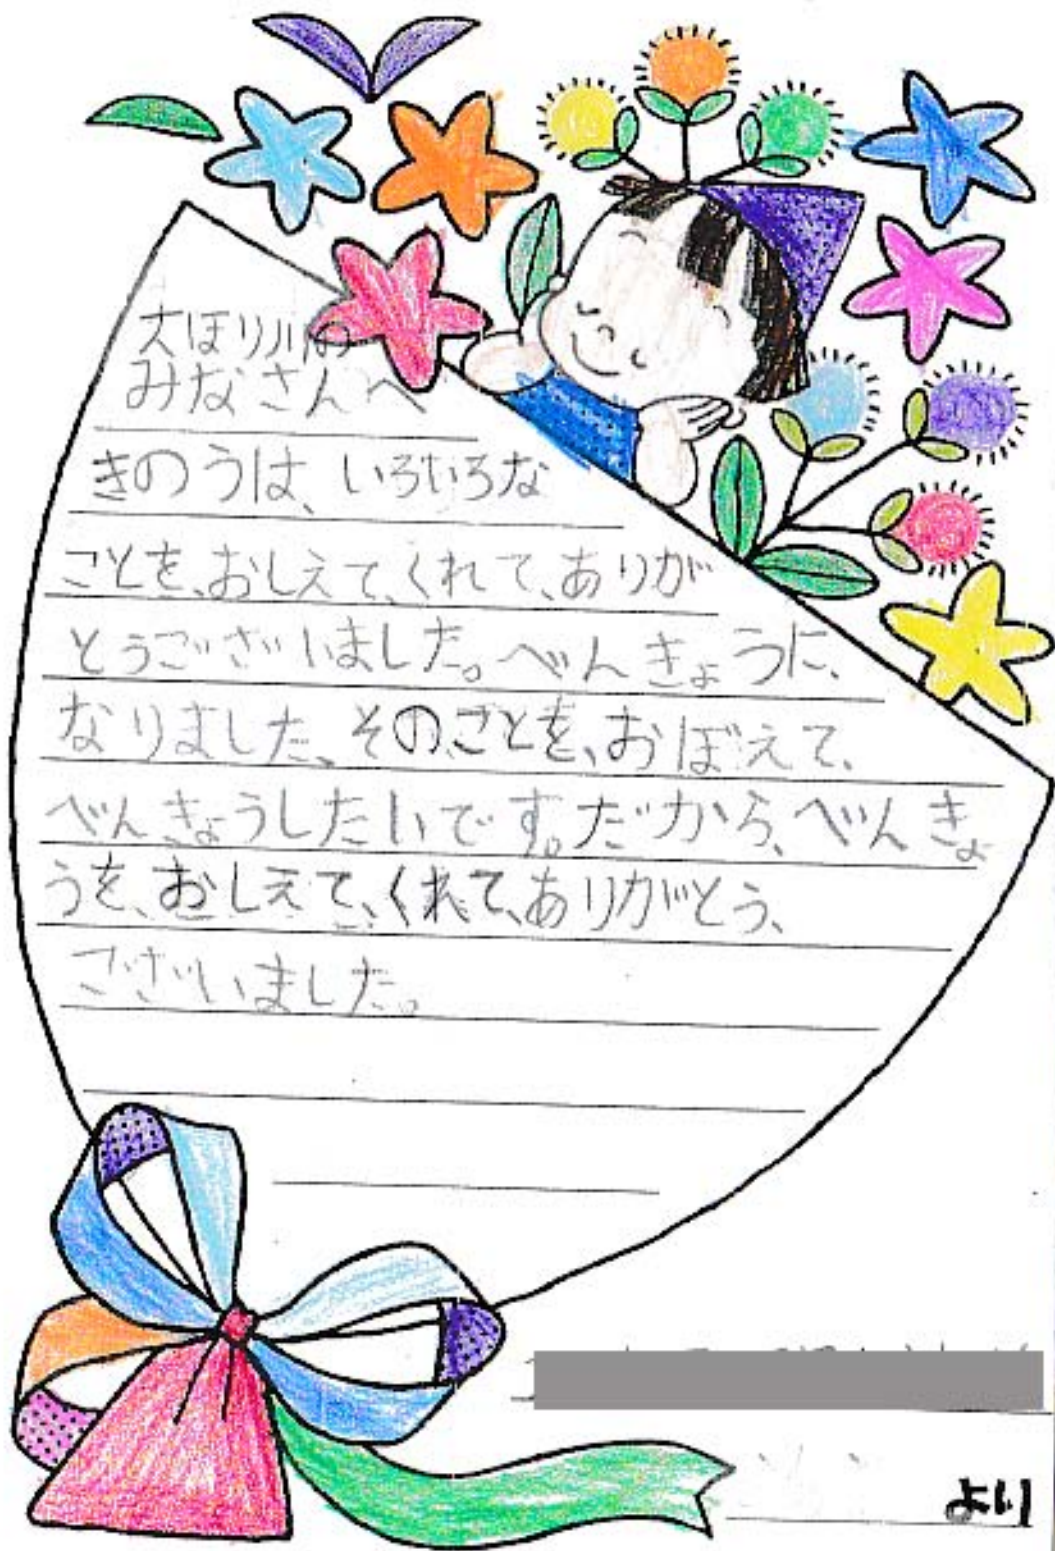 大ほり川の
みなさんへ
きのうは、いろいろな
ことを、おしえて、くれて、ありが
とうございました。べんきょうに、
なりました、そのことを、おぼえて、
べんきょうしたいです。だから、べんきょ
うを、おしえて、くれて、ありがとう、
ございました。
より